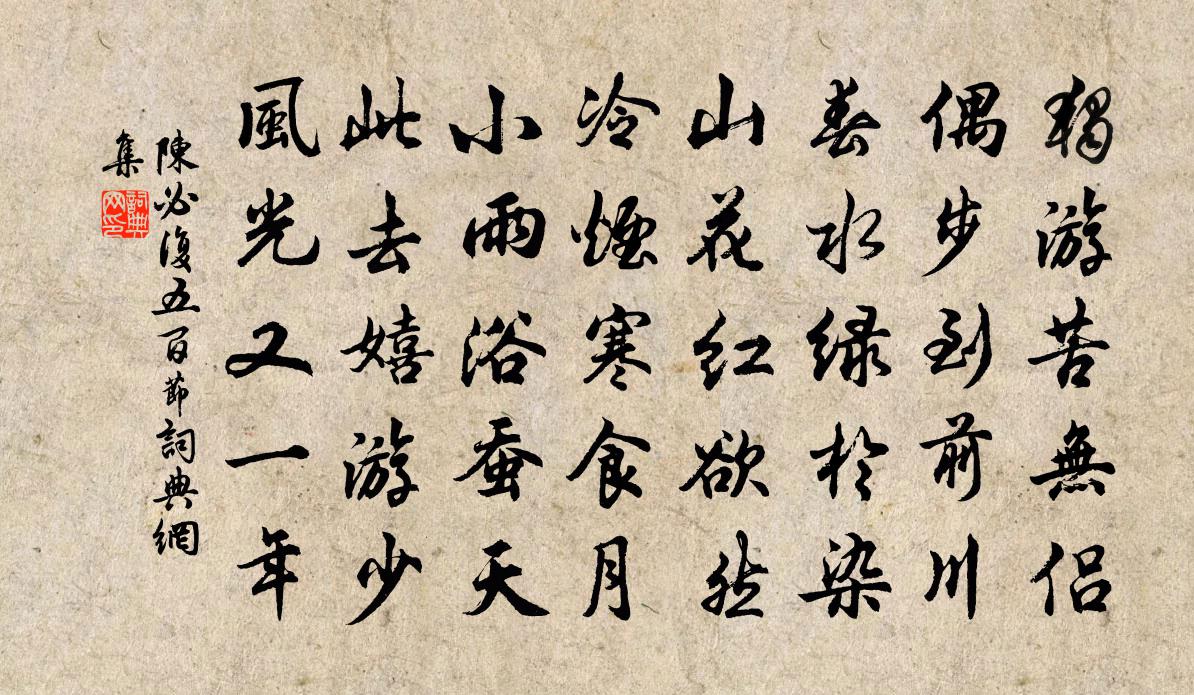 獨游苦無侶
偶步到前川
春水绿於染
山花红欲然
冷煙寒食月
小雨浴蚕天
此去嬉游少
風光又一年
陳必復五百節詞典網
集
詞典
网印